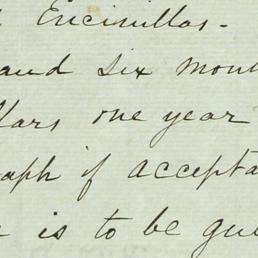 Encinillas.
and six mon
llars one year
aph if accepta
is to be gu